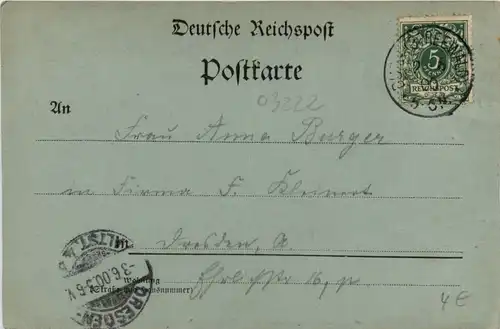 Deutsche Reichspost
Postkarte
5
REICHSPOST
03222
An
Frau Anna Burger
in Firma F. Kleinert
Dresden, A.
Wohnung
(Straße und Hausnummer)
16, p
DRESDEN-
3.6.00.
4 €